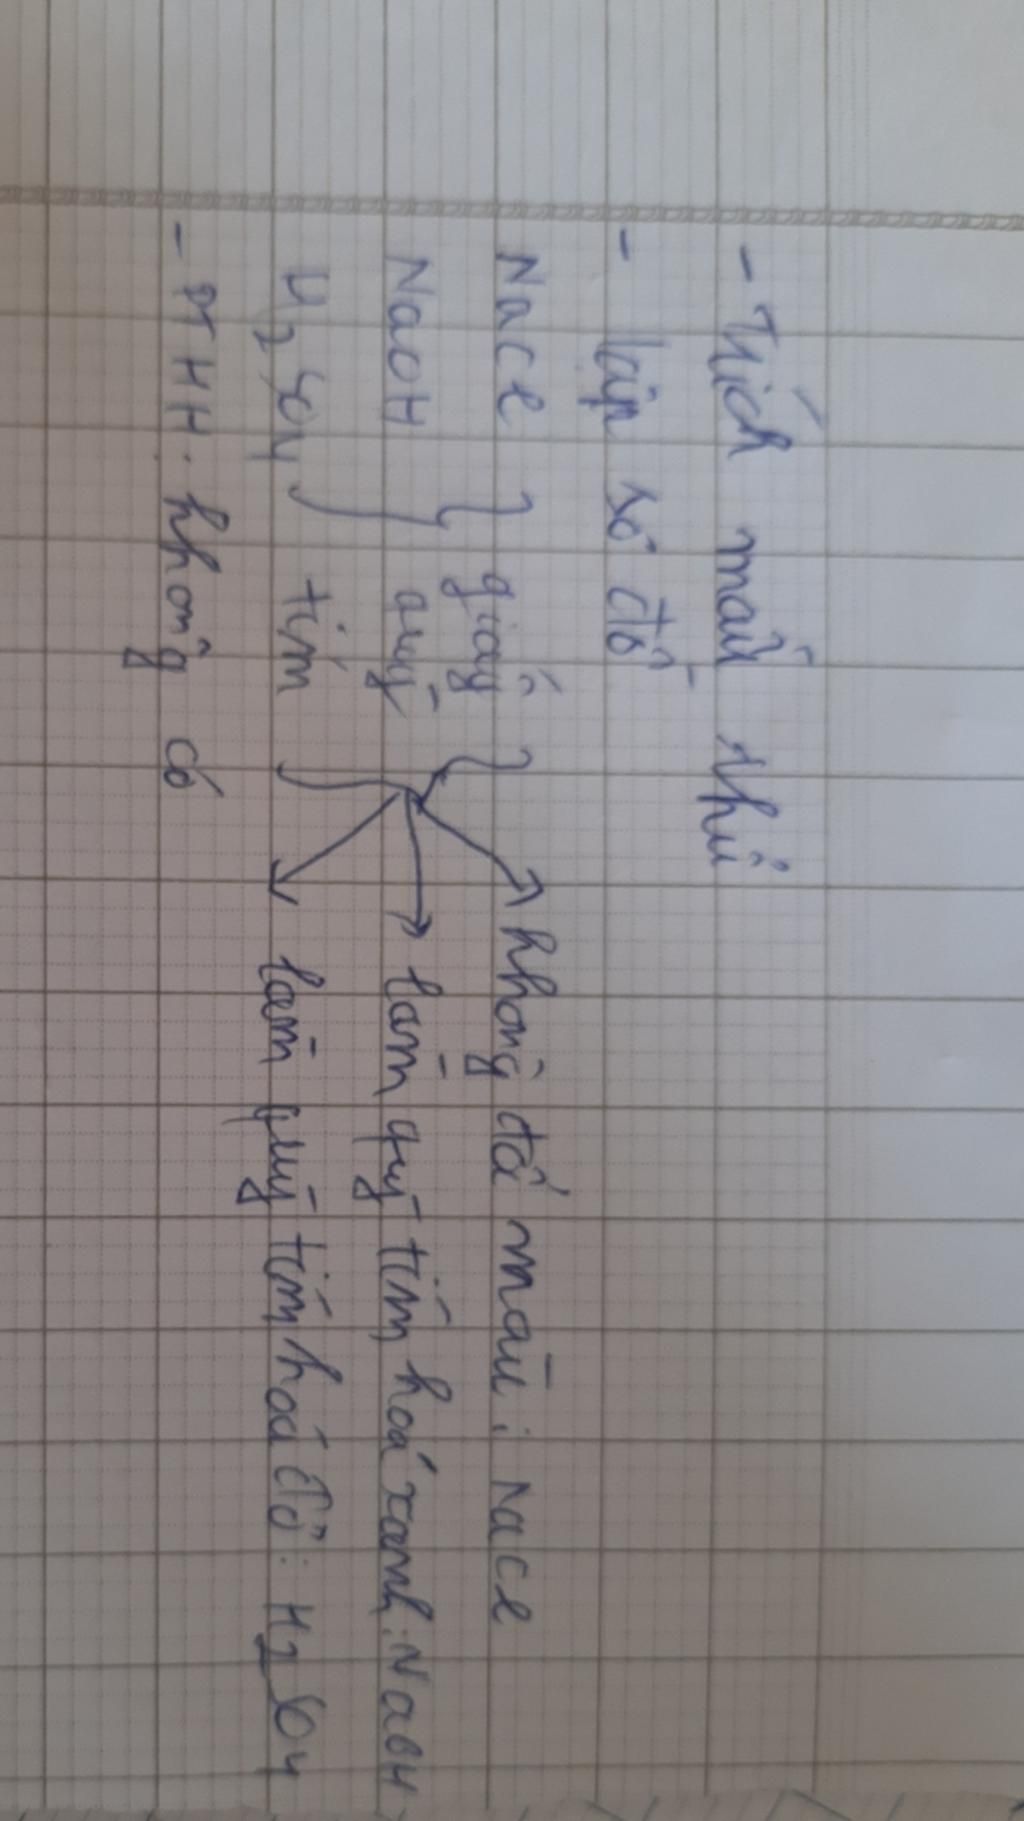 - Trích mẫu thử
- lập sơ đồ
NaCl } giấy } không đổi màu : NaCl
NaOH quỳ làm quỳ tím hoá xanh : NaOH
H2SO4 tím làm quỳ tím hoá đỏ : H2SO4
- PTHH : không có